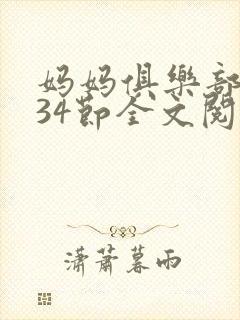 妈妈俱樂部
34節全文閱
潇蕭暮雨